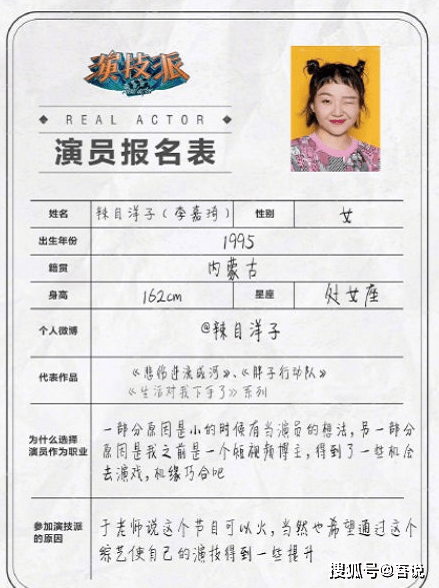 演技派
REAL ACTOR
演员报名表
姓名 辣目洋子(李嘉琦) 性别 女
出生年份 1995
籍贯 内蒙古
身高 162cm 星座 处女座
个人微博 @辣目洋子
代表作品 《悲伤逆流成河》、《胖子行动队》
《生活对我下手了》系列
为什么选择
演员作为职业
一部分原因是小的时候有当演员的想法,另一部分
原因是我之前是一个短视频博主,得到了一些机会
去演戏,机缘巧合吧
参加演技派
的原因
于老师说这个节目可以火,当然也希望通过这个
综艺使自己的演技得到一些提升
搜狐号@吾说